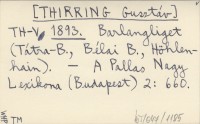 [THIRRING Gusztáv]
TH-V 1893. Barlangliget
(Tátra-B., Bélai B., Höhlen-
hain). – A Pallas Nagy
Lexikona (Budapest) 2: 660.
TM